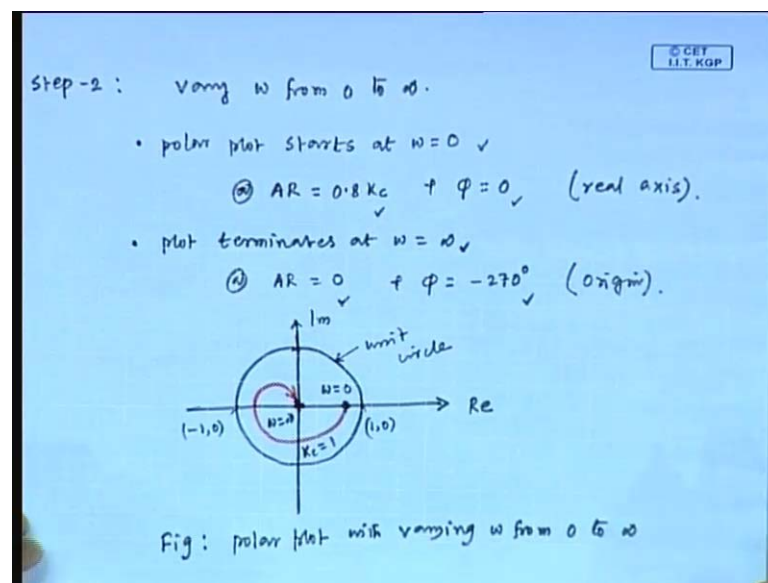 © CET
I.I.T. KGP
Step-2 : vary w from 0 to ∞.
• polar plot starts at w = 0 ✓
@ AR = 0.8 Kc ✓ + φ = 0 ✓ (real axis).
• plot terminates at w = ∞ ✓
@ AR = 0 ✓ + φ = -270° ✓ (origin).
Im
unit circle
w=0
Re
(-1,0)
w=∞
(1,0)
Kc=1
Fig : polar plot with varying w from 0 to ∞